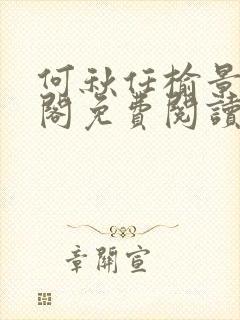 何秋任榆景
閣免費閱讀
章開宣